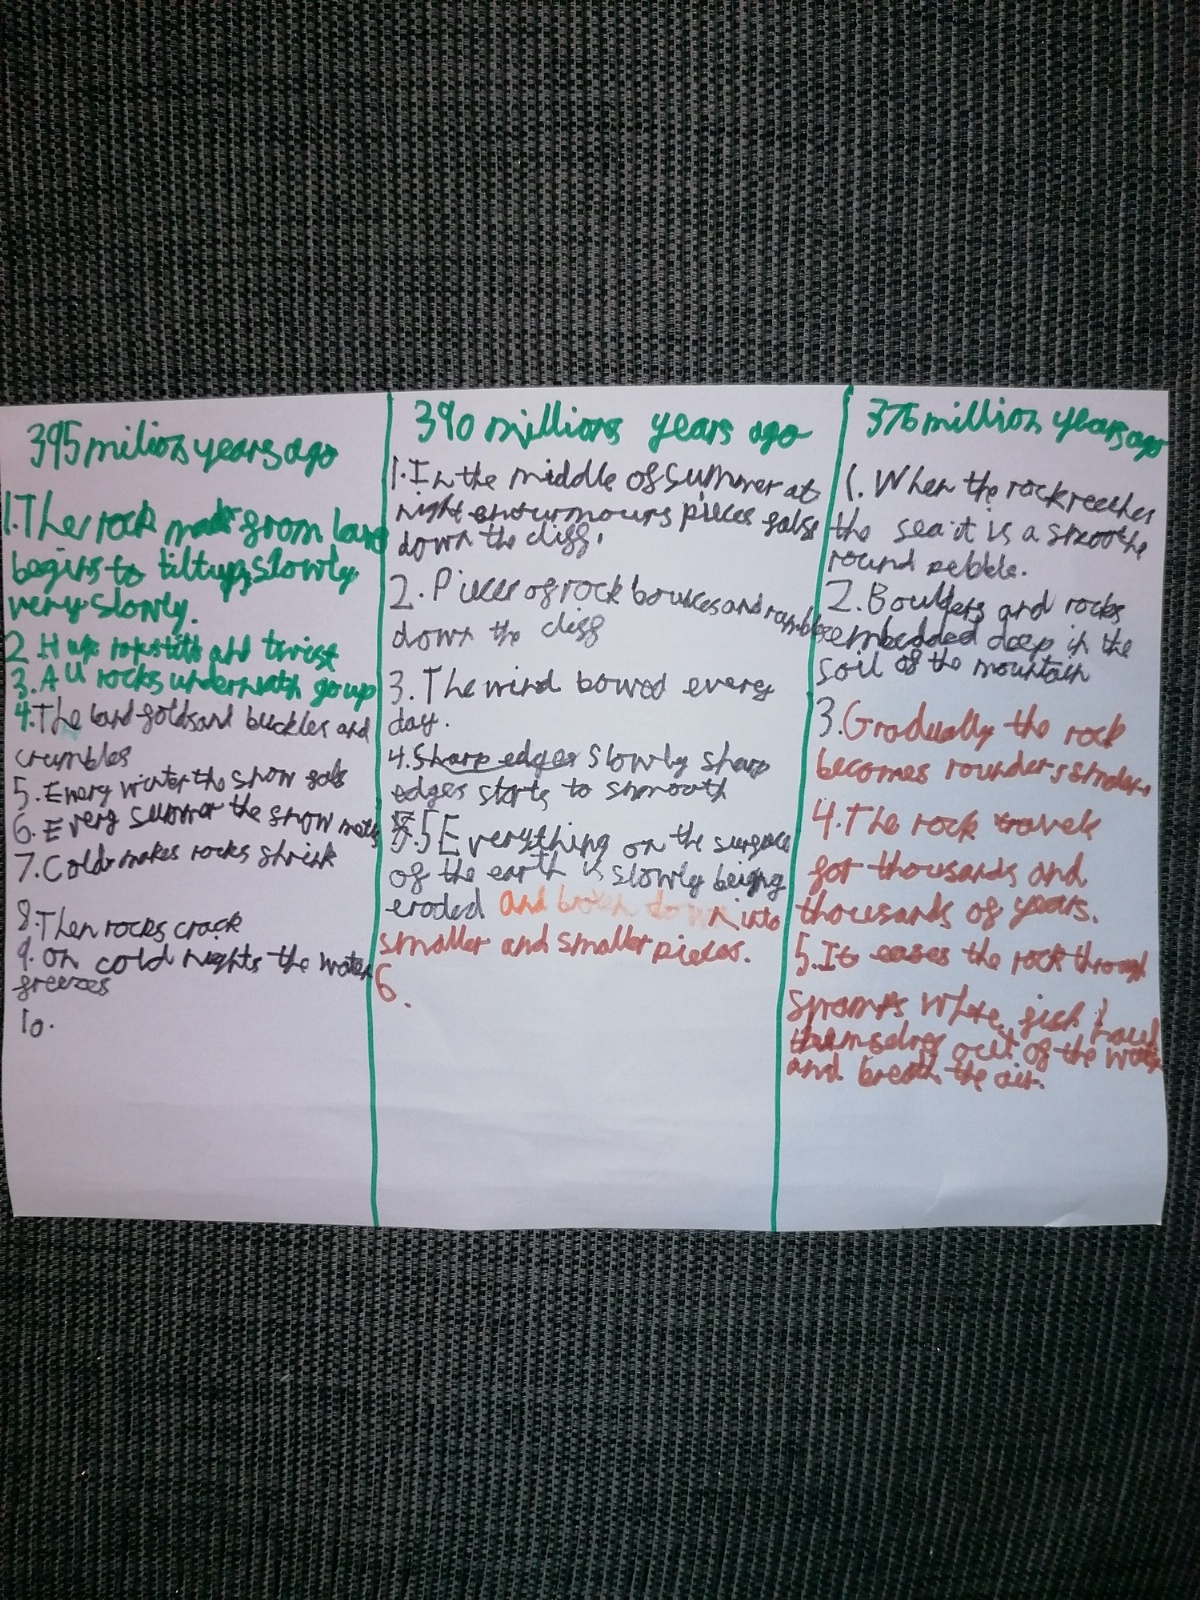 395 milion years ago
1. The rock made from lava
begins to tilt up, slowly
very slowly.
2. and twist
3. All rocks undernath go up
4. The land folds and buckles and
crumbles
5. Every winter the snow fals
6. Every summer the snow melts
7. Cold makes rocks shrink
8. Then rocks crack
9. on cold nights the water
freezes
10.
390 millions years ago
1. In the middle of summer at
night enourmours pieces falss
down the cliff.
2. Pieces of rock bounces and
down the cliff
3. The wind bowed every
day.
4. Sharp edges slowly sharp
edges starts to smooth
5 Everything on the surface
of the earth is slowly beigng
eroded and broken down into
smaller and smaller pieces.
6.
376 million years ago
1. When the rock reeches
the sea it is a smoothe
round pebble.
2. Boulders and rocks
embedded deep in the
soil of the mountain
3. Gradually the rock
becomes rounder,
4. The rock travels
for thousands and
thousands of years.
5. It eases the rock through
where fish haul
themselves out of the water
and breath the air.